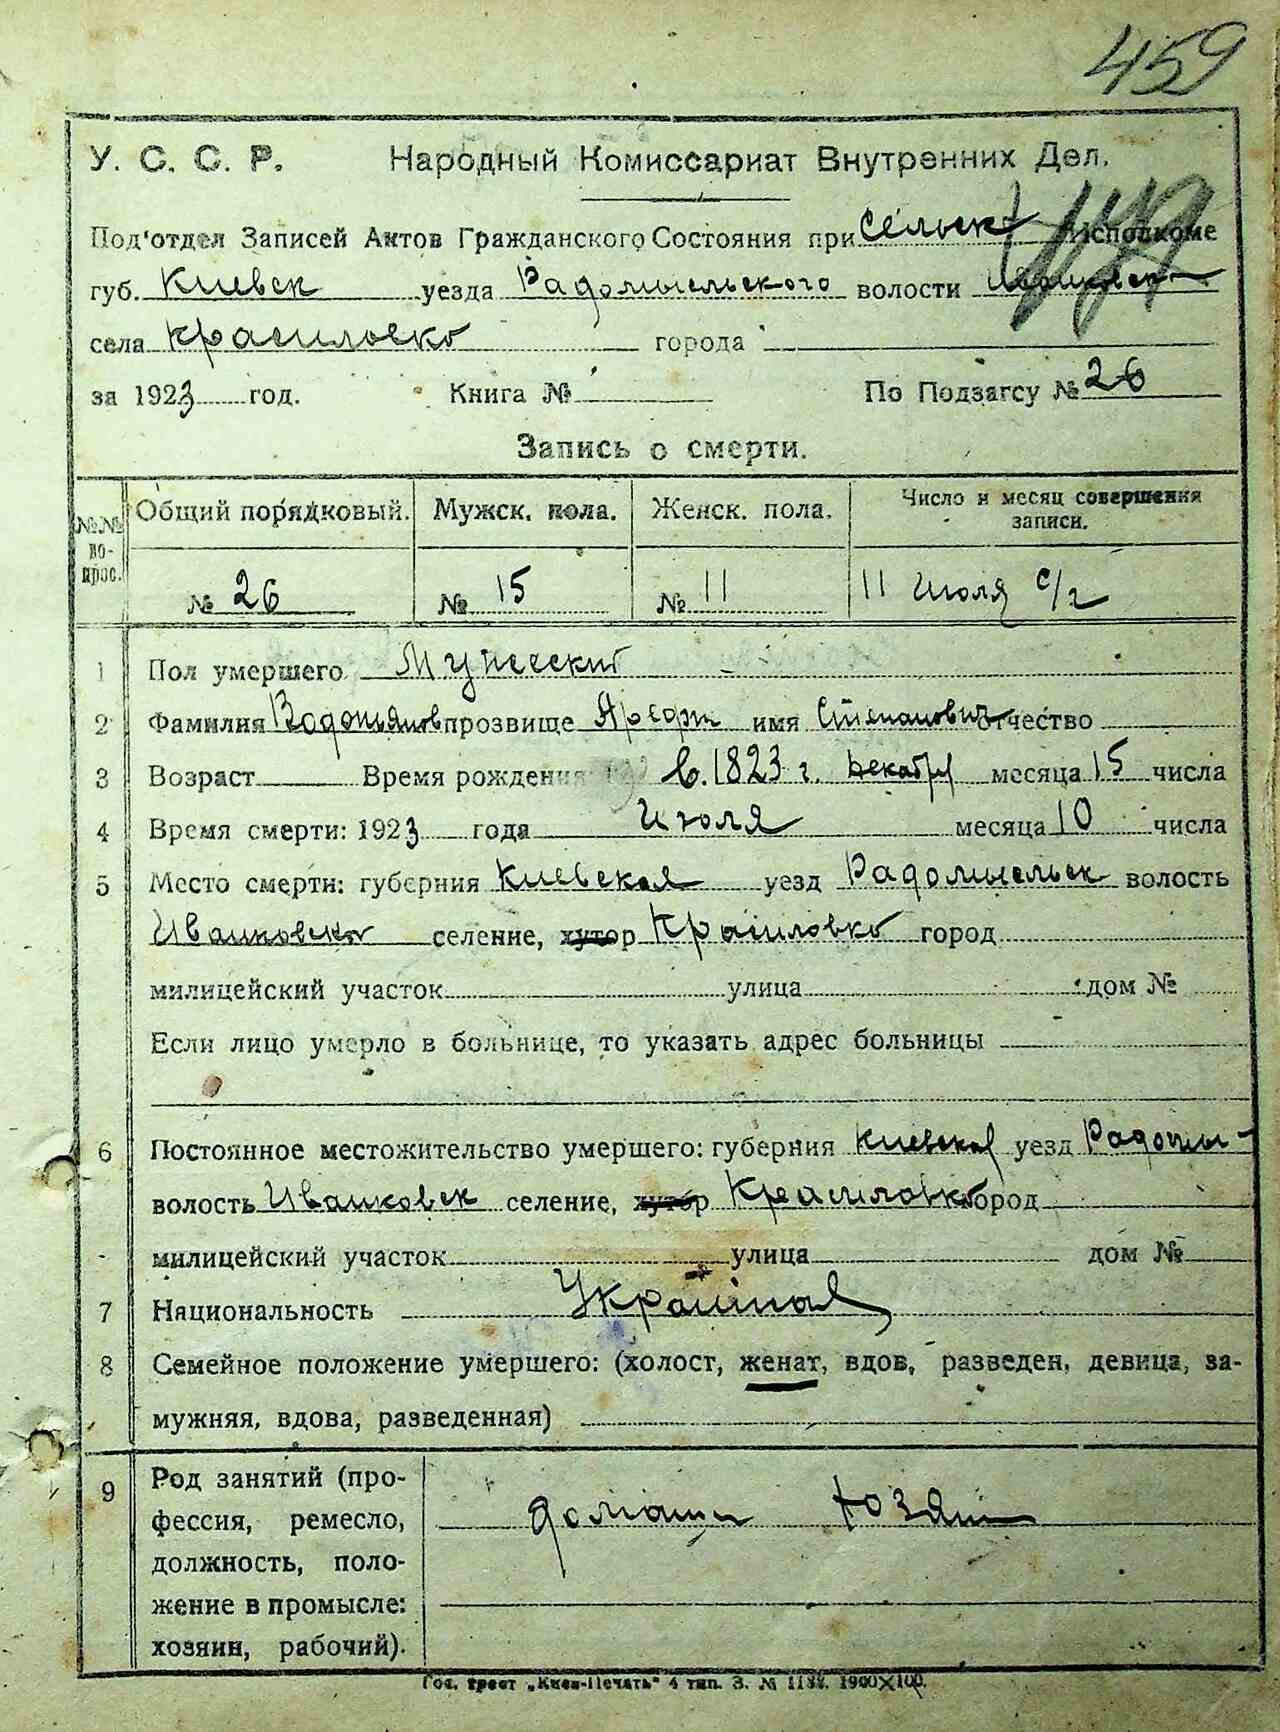 459
У. С. С. Р. Народный Комиссариат Внутренних Дел.
Под'отдел Записей Актов Гражданского Состояния при Сельск Исполкоме
губ. Киевск уезда Радомысльского волости
села Красиловка города
за 1923 год. Книга № По Подзагсу № 26
Запись о смерти.
№№ во-прос. Общий порядковый. Мужск. пола. Женск. пола. Число и месяц совершения записи.
№ 26 № 15 № 11 11 Июля с/г
1 Пол умершего Мужеский
2 Фамилия Водопьянов прозвище имя Степанович отчество
3 Возраст Время рождения в. 1823 г. Декабр месяца 15 числа
4 Время смерти: 1923 года Июля месяца 10 числа
5 Место смерти: губерния Киевская уезд Радомысльск волость
Иванковска селение, хутор Красиловко город
милицейский участок улица дом №
Если лицо умерло в больнице, то указать адрес больницы
6 Постоянное местожительство умершего: губерния Киевская уезд Радомы-
волость Иванковск селение, хутор Красиловко город
милицейский участок улица дом №
7 Национальность
8 Семейное положение умершего: (холост, женат, вдов, разведен, девица, за-
мужняя, вдова, разведенная)
9 Род занятий (про-
фессия, ремесло,
должность, поло-
жение в промысле:
хозяин, рабочий).
Гос. трест „Киев-Печать" 4 тип. З. № 1182. 1900×100.